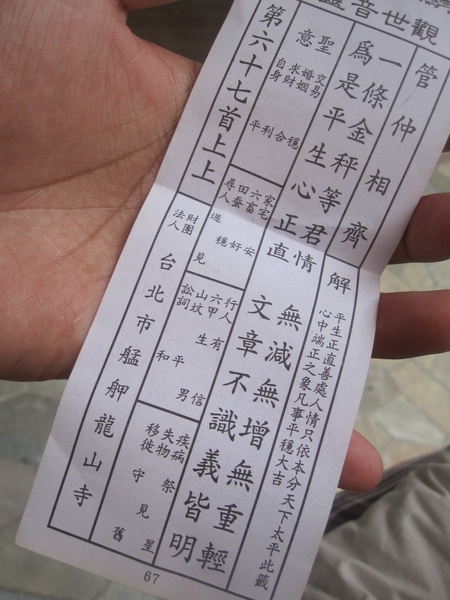 觀世音靈
管仲相齊
解
平生正直善處人情只依本分天下太平此籤
心中端正之象凡事平穩大吉
一條金秤等君情
無減無增無重輕
爲是平生心正直
文章不識義皆明
聖意
交易 穩
婚姻 合
求財 利
自身 平
家宅 安
六畜 好
田蚕 穩
尋人 見
行人 有信
六甲 生男
山墳 平
訟詞 和
疾病 祭星
失物 見
移徙 守舊
第六十七首上上
財團法人
台北市艋舺龍山寺
67